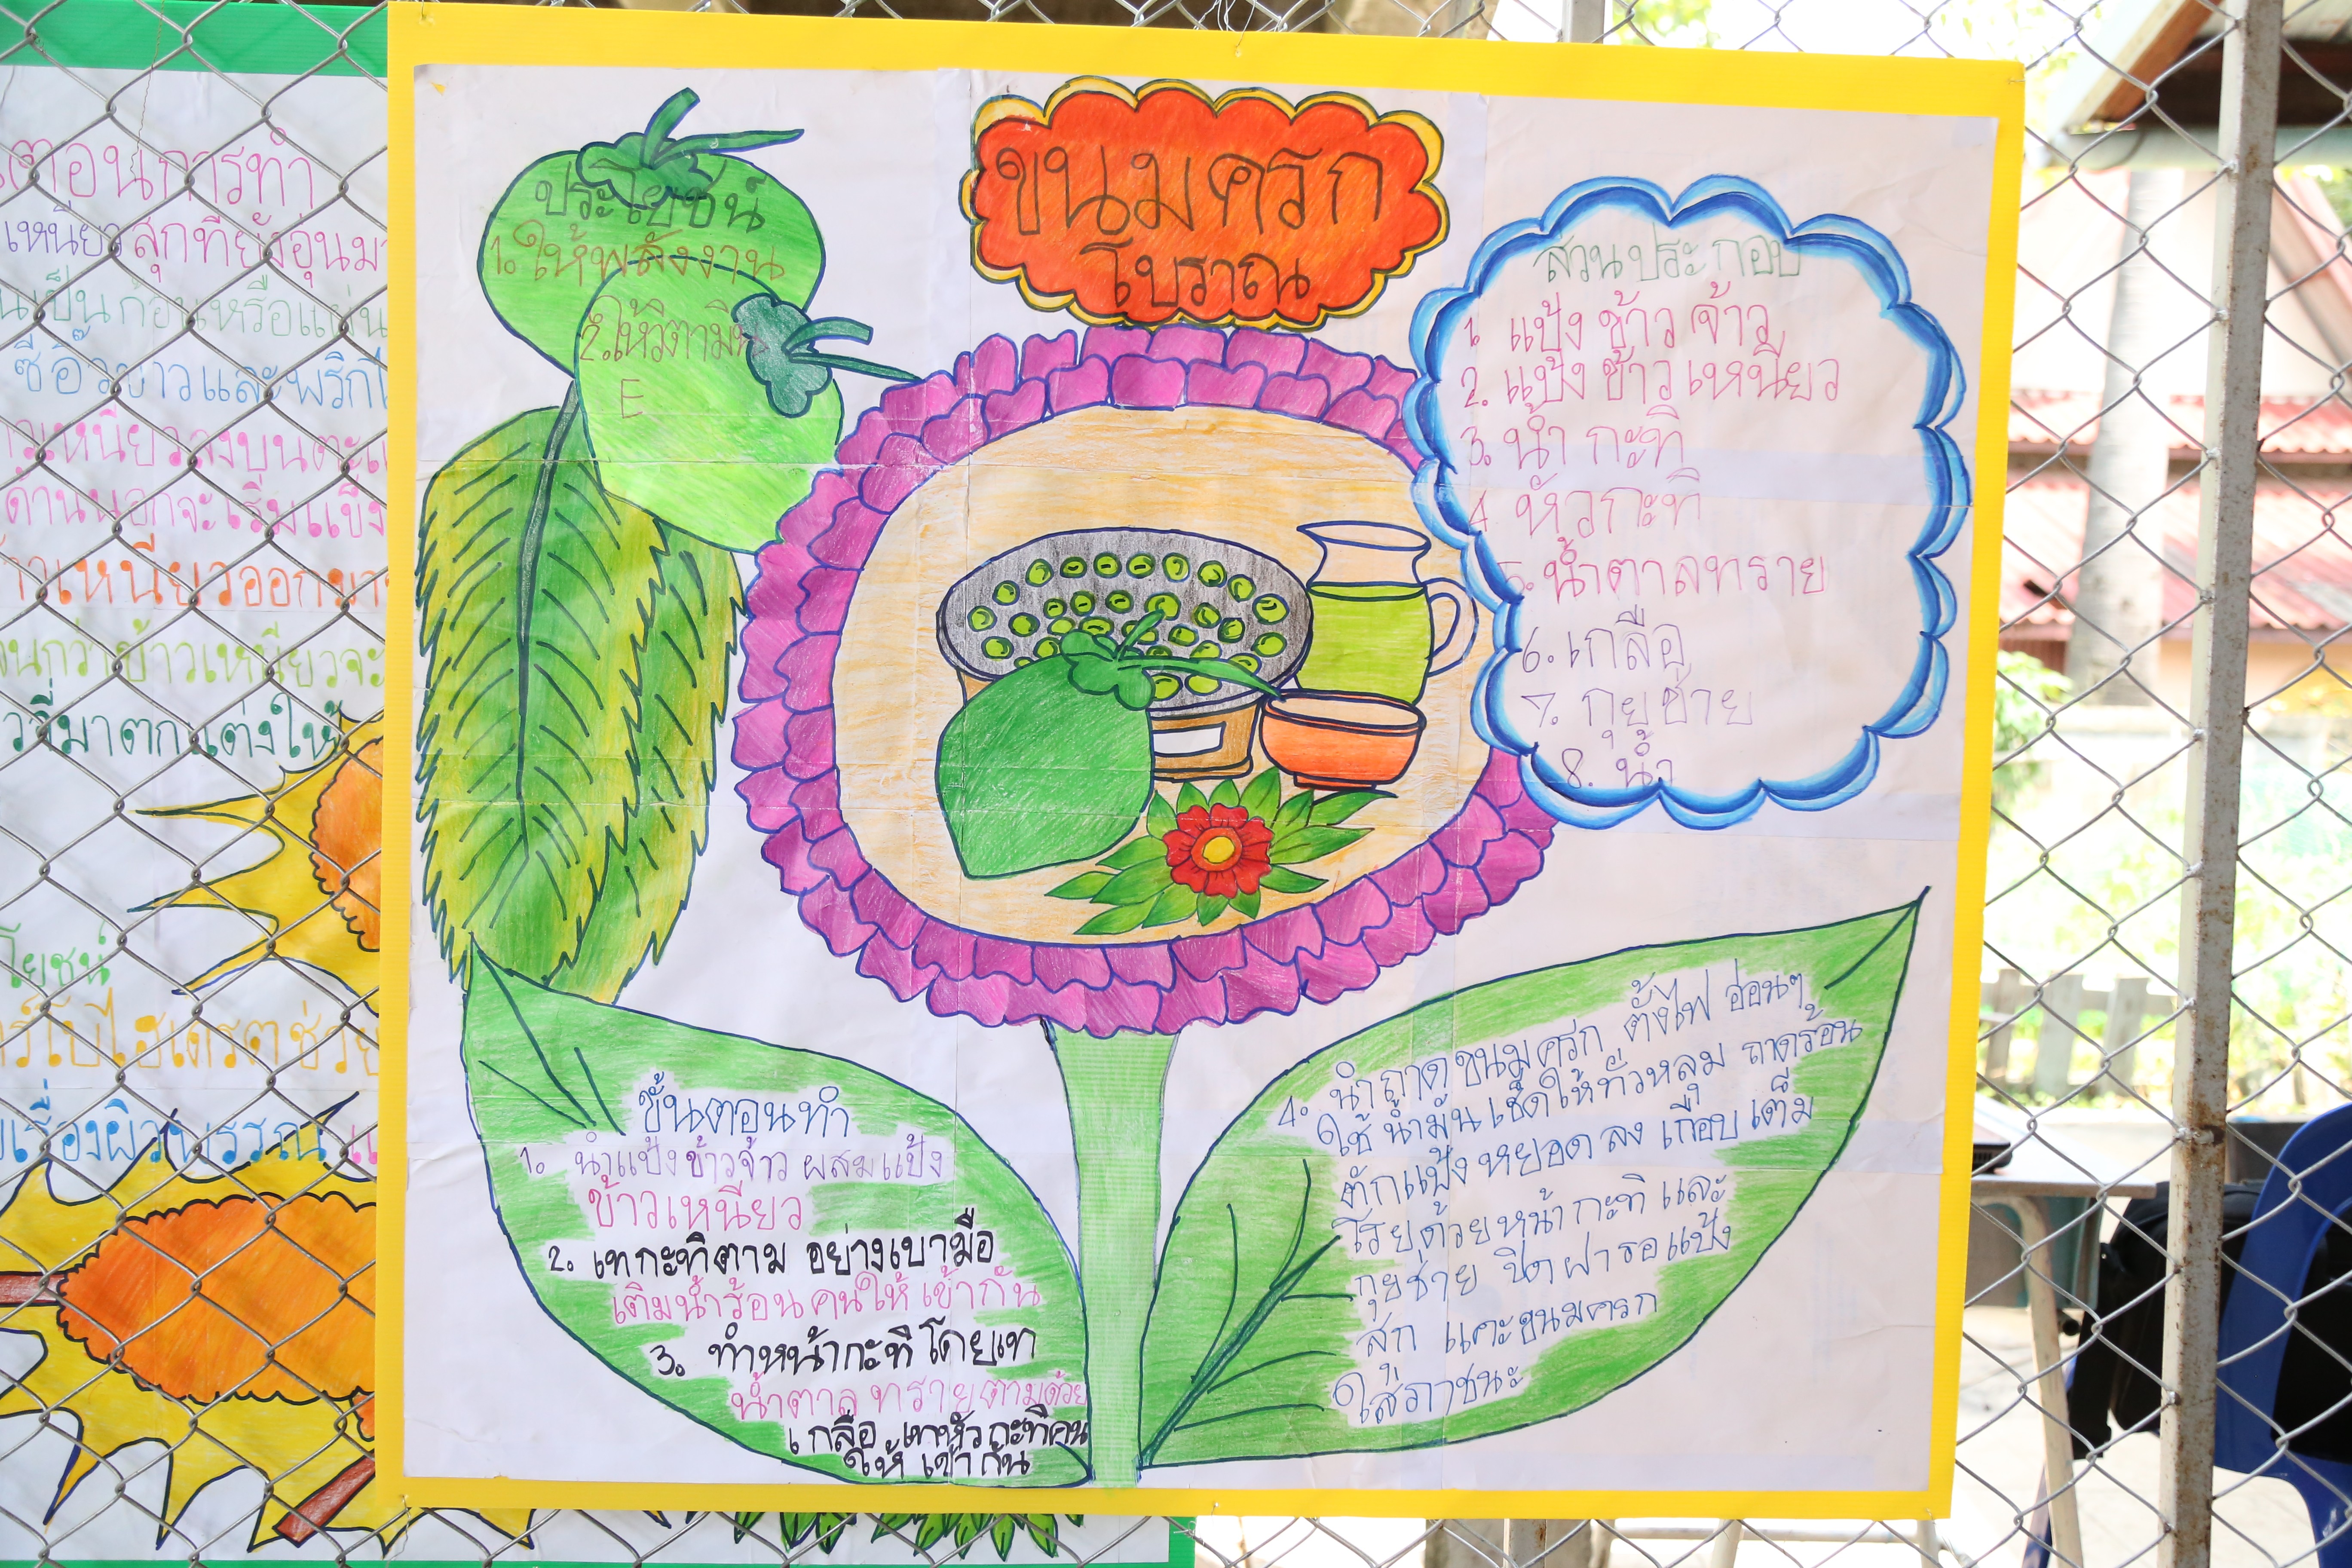 ขนมครก
โบราณ
ประโยชน์
1. ให้พลังงาน
2. ให้วิตามิน
E
สวนประกอบ
1. แป้งข้าวจ้าว
2. แป้งข้าวเหนียว
3. น้ำกะทิ
4. หัวกะทิ
5. น้ำตาลทราย
6. เกลือ
7. กุยช่าย
8. น้ำ
ขั้นตอนทำ
1. นำแป้งข้าวจ้าว ผสมแป้ง
ข้าวเหนียว
2. เทกะทิตาม อย่างเบามือ
เติมน้ำร้อนคนให้เข้ากัน
3. ทำหน้ากะทิโดยเท
น้ำตาลทรายตามด้วย
เกลือ เทหัวกะทิคน
ให้เข้ากัน
4. นำถาดขนมครก ตั้งไฟอ่อนๆ
ใช้น้ำมันเช็ดให้ทั่วหลุม ถาดร้อน
ตักแป้งหยอดลงเกือบเต็ม
โรยด้วยหน้ากะทิและ
กุยช่าย ปิดฝารอแป้ง
สุก แคะขนมครก
ใส่ภาชนะ
ตอนการทำ
เหนียวสุกที่ยังอุ่นมา
เป็นก้อนหรือแผ่น
ซีอิ๊วขาวและพริกไ
เหนียวลงบนตะแ
ด้านนอกจะเริ่มแข็ง
าวเหนียวออกมา
นกว่าข้าวเหนียวจะ
วี่มาตกแต่งให้
โยชน์
ร์โบไฮเดรตช่วย
เรื่องผิวพรรณ แ